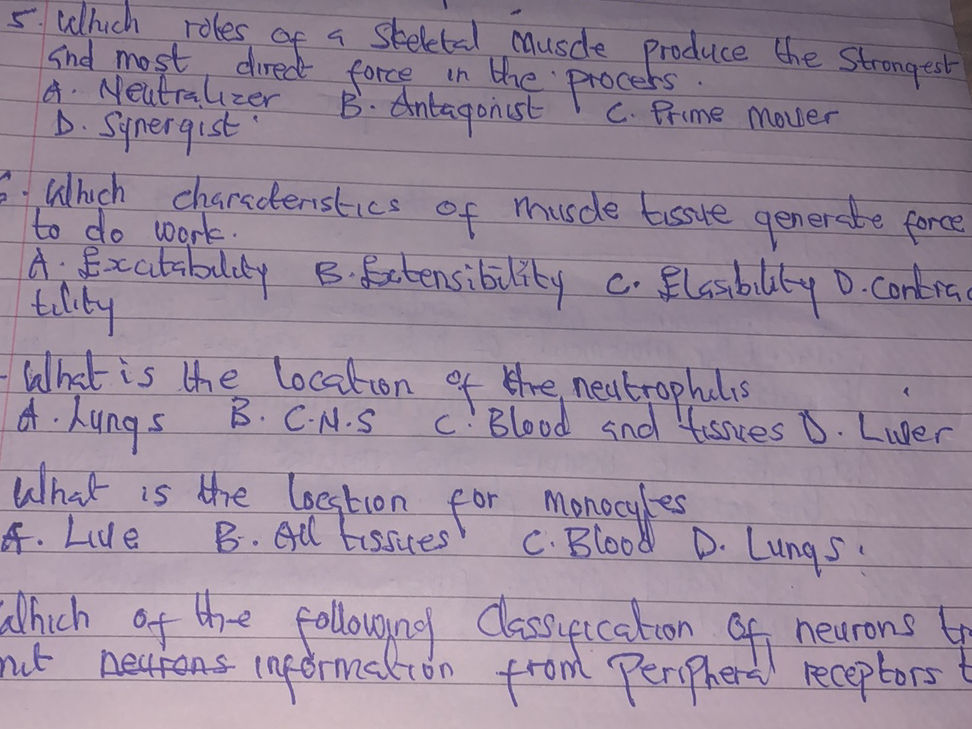 5. Which roles of a skeletal muscle produce the strongest
and most direct force in the process.
A. Neutralizer B. Antagonist C. Prime mover
D. Synergist
6. Which characteristics of muscle tissue generate force
to do work.
A. Excitability B. Extensibility C. Elasibility D. Contrac
tility
- What is the location of the neutrophils
A. Lungs B. C.N.S C. Blood and tissues D. Liver
What is the location for monocytes
A. Live B. All tissues C. Blood D. Lungs.
Which of the following Classification of neurons tr
mit neurons information from Peripheral receptors t